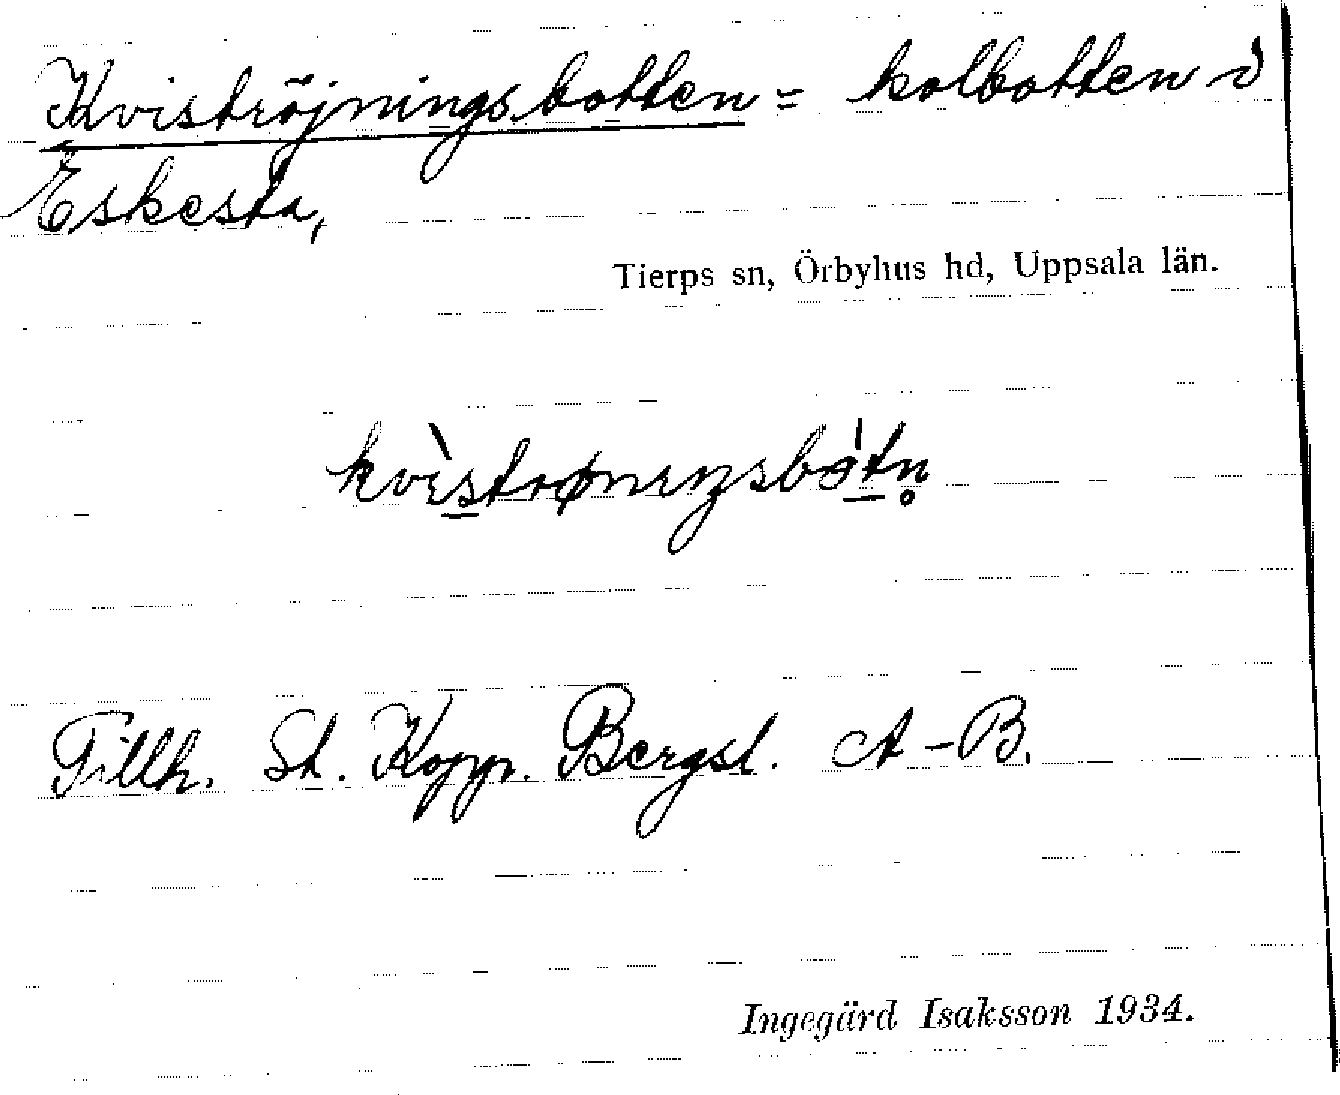 Kviströjningsbotten = kolbotten i
Eskesta,
Tierps sn, Örbyhus hd, Uppsala län.
kvìstrønıŋsbòtn̥
Tillh. St. Kopp. Bergsl. A-B.
Ingegärd Isaksson 1934.